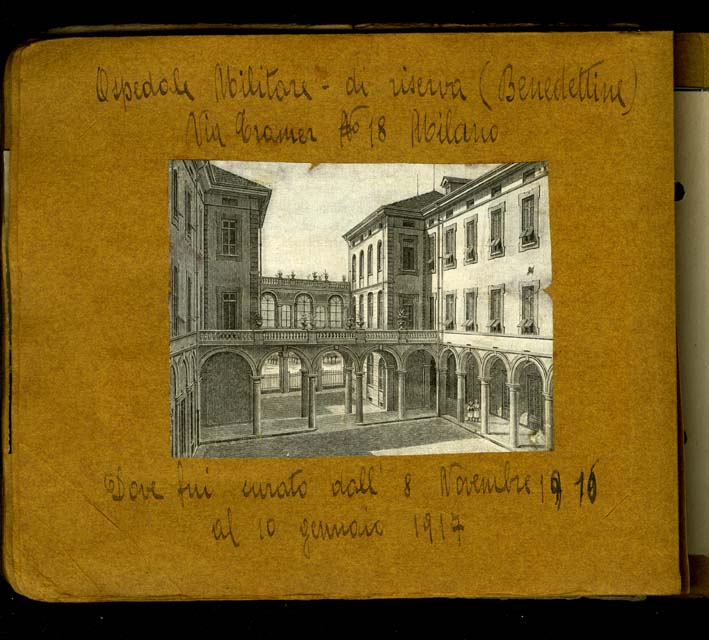 Ospedale Militare - di riserva (Benedettine)
Via Cramer No 18 Milano
Dove fui curato dall' 8 Novembre 1916
al 10 gennaio 1917